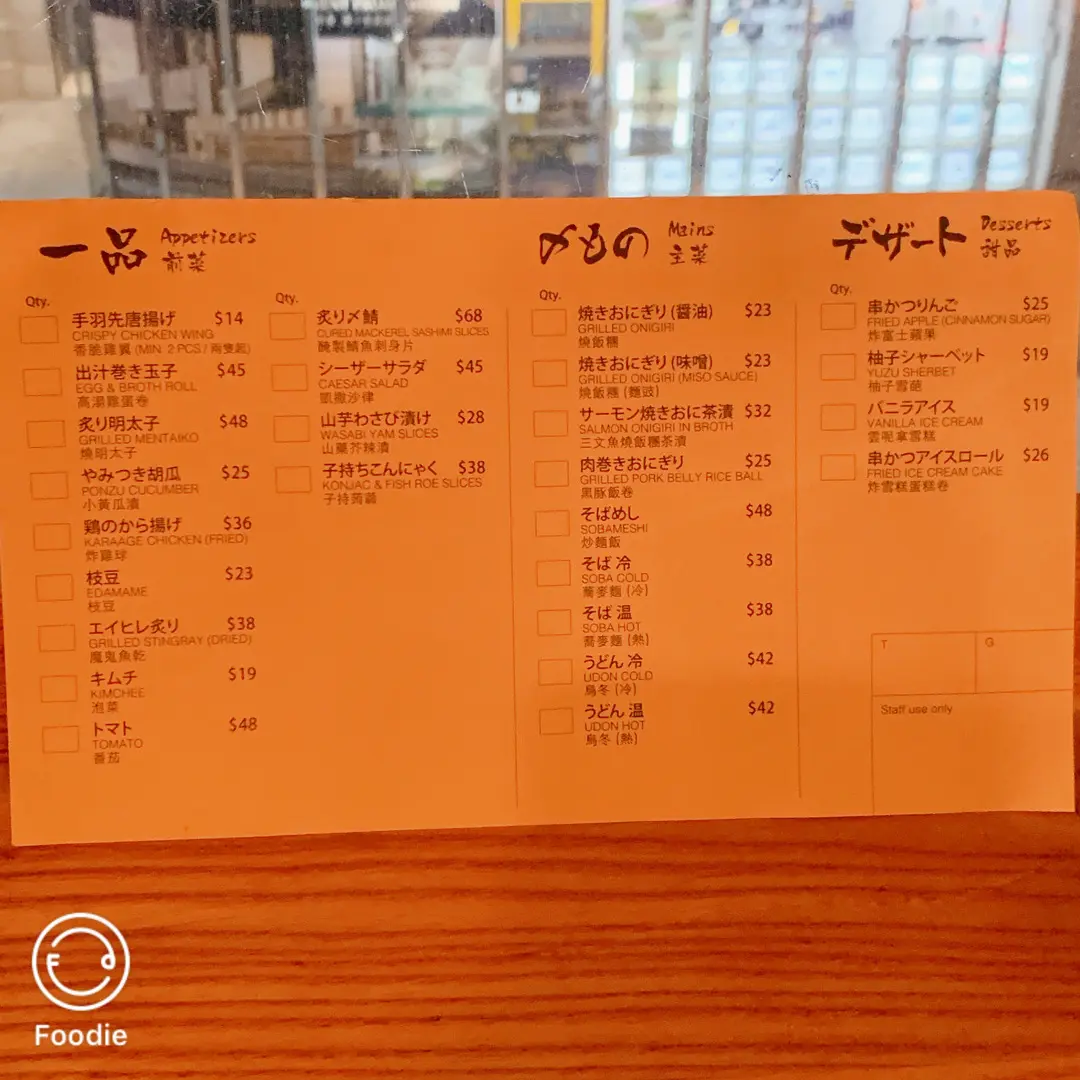 一品 Appetizers
前菜
Qty.
手羽先唐揚げ $14
CRISPY CHICKEN WING
香脆雞翼 (MIN. 2 PCS / 兩隻起)
出汁巻き玉子 $45
EGG & BROTH ROLL
高湯雞蛋卷
炙り明太子 $48
GRILLED MENTAIKO
燒明太子
やみつき胡瓜 $25
PONZU CUCUMBER
小黃瓜漬
鶏のから揚げ $36
KARAAGE CHICKEN (FRIED)
炸雞球
枝豆 $23
EDAMAME
枝豆
エイヒレ炙り $38
GRILLED STINGRAY (DRIED)
魔鬼魚乾
キムチ $19
KIMCHEE
泡菜
トマト $48
TOMATO
番茄
Qty.
炙り〆鯖 $68
CURED MACKEREL SASHIMI SLICES
醃製鯖魚刺身片
シーザーサラダ $45
CAESAR SALAD
凱撒沙律
山芋わさび漬け $28
WASABI YAM SLICES
山藥芥辣漬
子持ちこんにゃく $38
KONJAC & FISH ROE SLICES
子持蒟蒻
〆もの Mains
主菜
Qty.
焼きおにぎり (醤油) $23
GRILLED ONIGIRI
燒飯糰
焼きおにぎり (味噌) $23
GRILLED ONIGIRI (MISO SAUCE)
燒飯糰 (麵豉)
サーモン焼きおに茶漬 $32
SALMON ONIGIRI IN BROTH
三文魚燒飯糰茶漬
肉巻きおにぎり $25
GRILLED PORK BELLY RICE BALL
黑豚飯卷
そばめし $48
SOBAMESHI
炒麵飯
そば 冷 $38
SOBA COLD
蕎麥麵 (冷)
そば 温 $38
SOBA HOT
蕎麥麵 (熱)
うどん 冷 $42
UDON COLD
烏冬 (冷)
うどん 温 $42
UDON HOT
烏冬 (熱)
デザート Desserts
甜品
Qty.
串かつりんご $25
FRIED APPLE (CINNAMON SUGAR)
炸富士蘋果
柚子シャーベット $19
YUZU SHERBET
柚子雪葩
バニラアイス $19
VANILLA ICE CREAM
雲呢拿雪糕
串かつアイスロール $26
FRIED ICE CREAM CAKE
炸雪糕蛋糕卷
T G
Staff use only
F d
Foodie